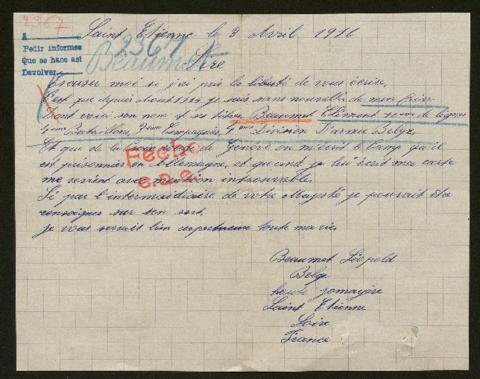 2367
A
Pedir informes
Que se hace asi
Devolver
Saint Etienne le 3 Avril 1916
2367
Beaumont
Sire
Excuser moi si j'ai pris la liberté de vous écrire,
C'est que depuis about 1914 je suis sans nouvelles de mon frère
Dont voici son nom et ses titres Beaumont Clément de ligne
Bataillon, Compagnie, Division D'armée Belge
Et que de la croix rouge de Genève on m'écrit le Camp qu'il
est prisonnier en Allemagne, et quand je lui écrit ma carte
me revient avec mention introuvable.
Si par l'intermédiaire de votre Majesté je pourrait être
renseigner sur son sort,
je vous serait bien respectueux toute ma vie.
Fecho
c.a.e.
Beaumont Léopold
Belge
haute
Saint Etienne
Loire
France